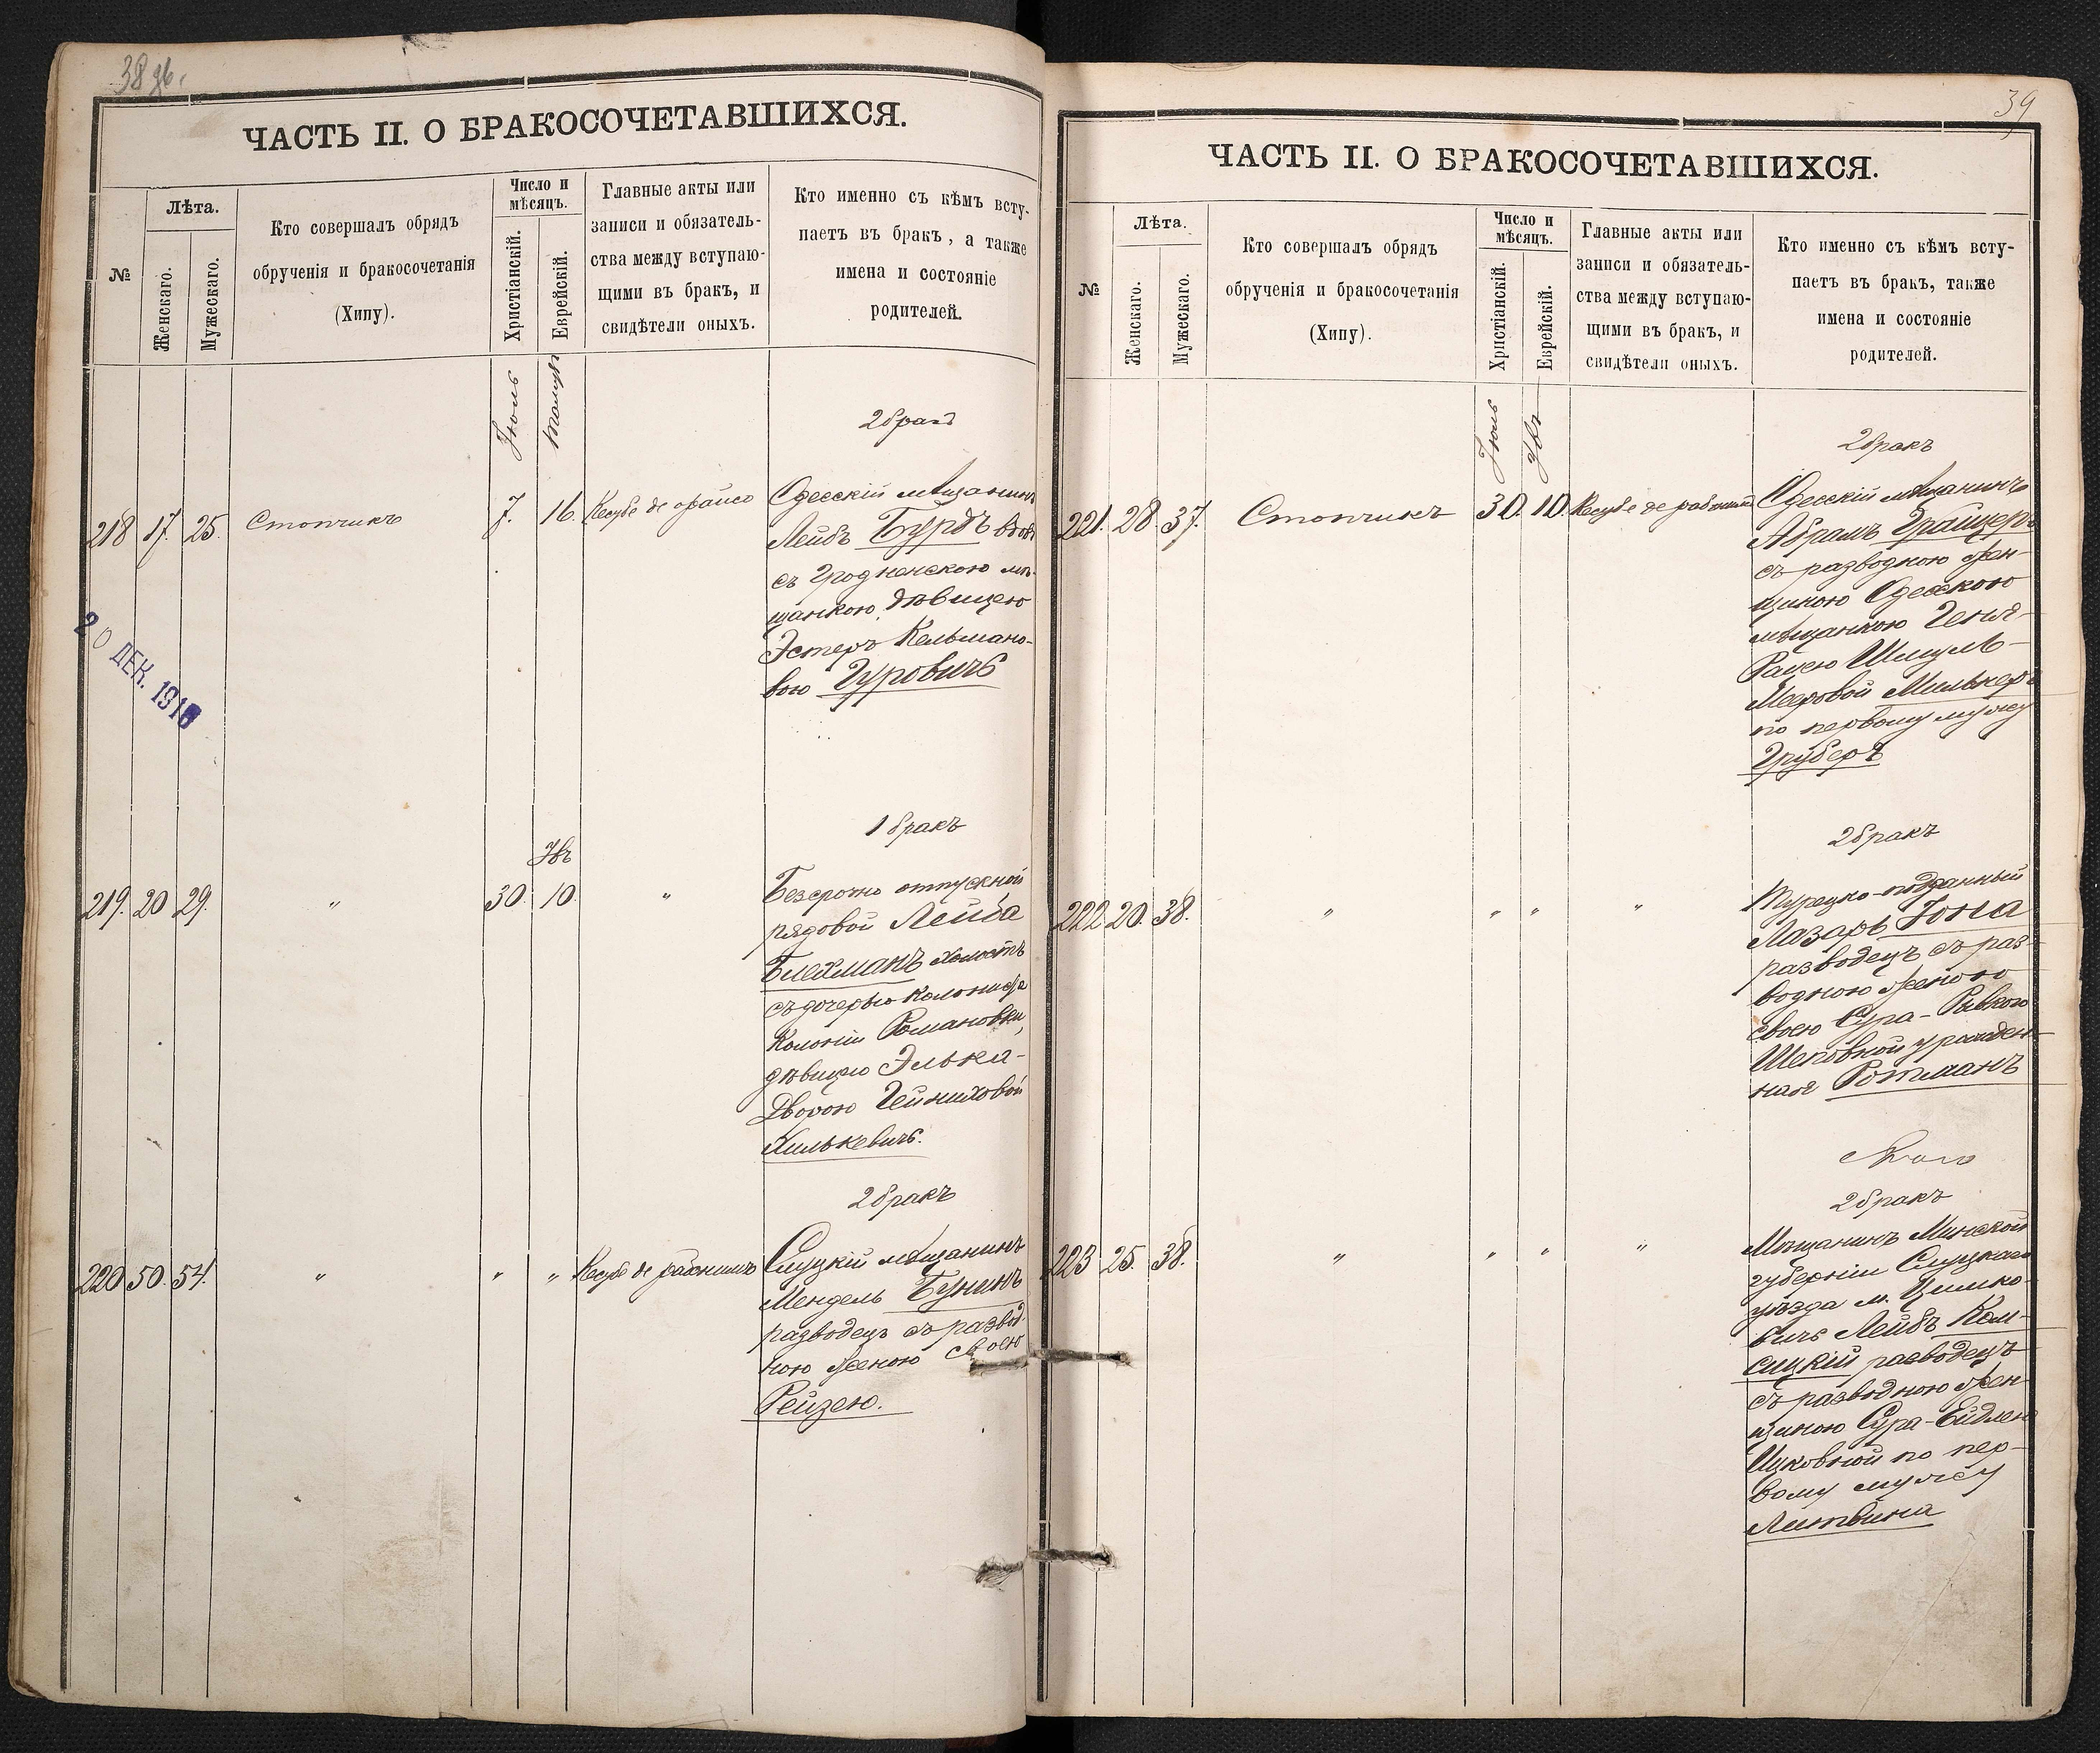 38 об.
ЧАСТЬ II. О БРАКОСОЧЕТАВШИХСЯ.
№
Лѣта.
Женскаго.
Мужескаго.
Кто совершалъ обрядъ
обрученія и бракосочетанія
(Хипу).
Число и
мѣсяцъ.
Христіанскій.
Еврейскій.
Главные акты или
записи и обязатель-
ства между вступаю-
щими въ бракъ, и
свидѣтели оныхъ.
Кто именно съ кѣмъ всту-
паетъ въ бракъ, а также
имена и состояніе
родителей.
Іюль
Тамузъ
2 бракъ
218 17. 25. Стопчикъ 7. 16.
Одесскій мѣщанинъ
Лейбъ Бурдъ вдов.
съ Гродненскою мѣ-
щанкою дѣвицею
Эстеръ Кельмано-
вою Гуровичъ
20 ДЕК. 191
1 бракъ
Увъ
219. 20 29. " 30 10. "
Безсрочно отпускной
рядовой Лейба
Блехманъ холостъ
съ дочерью колониста
Колоніи Романовки,
дѣвицею Элька-
Дворою Гейниховой
Хилькевичъ.
2 бракъ
220 50. 54. " " "
Слуцкій мѣщанинъ
Мендель Бунинъ
разводецъ съ развод-
ною женою своею
Рейзею.
39
ЧАСТЬ II. О БРАКОСОЧЕТАВШИХСЯ.
№
Лѣта.
Женскаго.
Мужескаго.
Кто совершалъ обрядъ
обрученія и бракосочетанія
(Хипу).
Число и
мѣсяцъ.
Христіанскій.
Еврейскій.
Главные акты или
записи и обязатель-
ства между вступаю-
щими въ бракъ, и
свидѣтели оныхъ.
Кто именно съ кѣмъ всту-
паетъ въ бракъ, также
имена и состояніе
родителей.
Іюль
Увъ
2 бракъ
221. 28. 37. Стопчикъ 30. 10.
Одесскій мѣщанинъ
Абрамъ Грайцеръ
съ разводною жен-
щиною Одесскою
мѣщанкою Геня-
Рансею Шмуль-
Мееровой Мильнеръ
по первому мужу
Груберъ
2 бракъ
222 20. 38. " " " "
Турецко-подданный
Лазарь Іона
разводецъ съ раз-
водною женою
своею Сура-Ривкою
Шеповной урожден-
ная Ротманъ
2 бракъ
223 25. 38. " " " "
Мѣщанинъ Минской
губерніи Слуцкаго
уѣзда м. Цимко-
вичъ Лейбъ Кам-
сицкій разводецъ
съ разводною жен-
щиною Сура-Ейдлею
Ицковной по пер-
вому мужу
Литвина